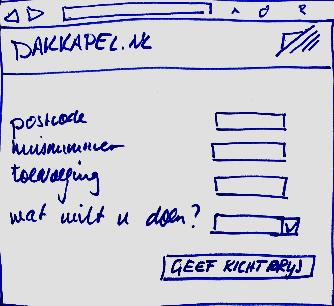 DAKKAPEL.NL
postcode
huisnummer
toevoeging
wat wilt u doen?
GEEF RICHTPRIJS